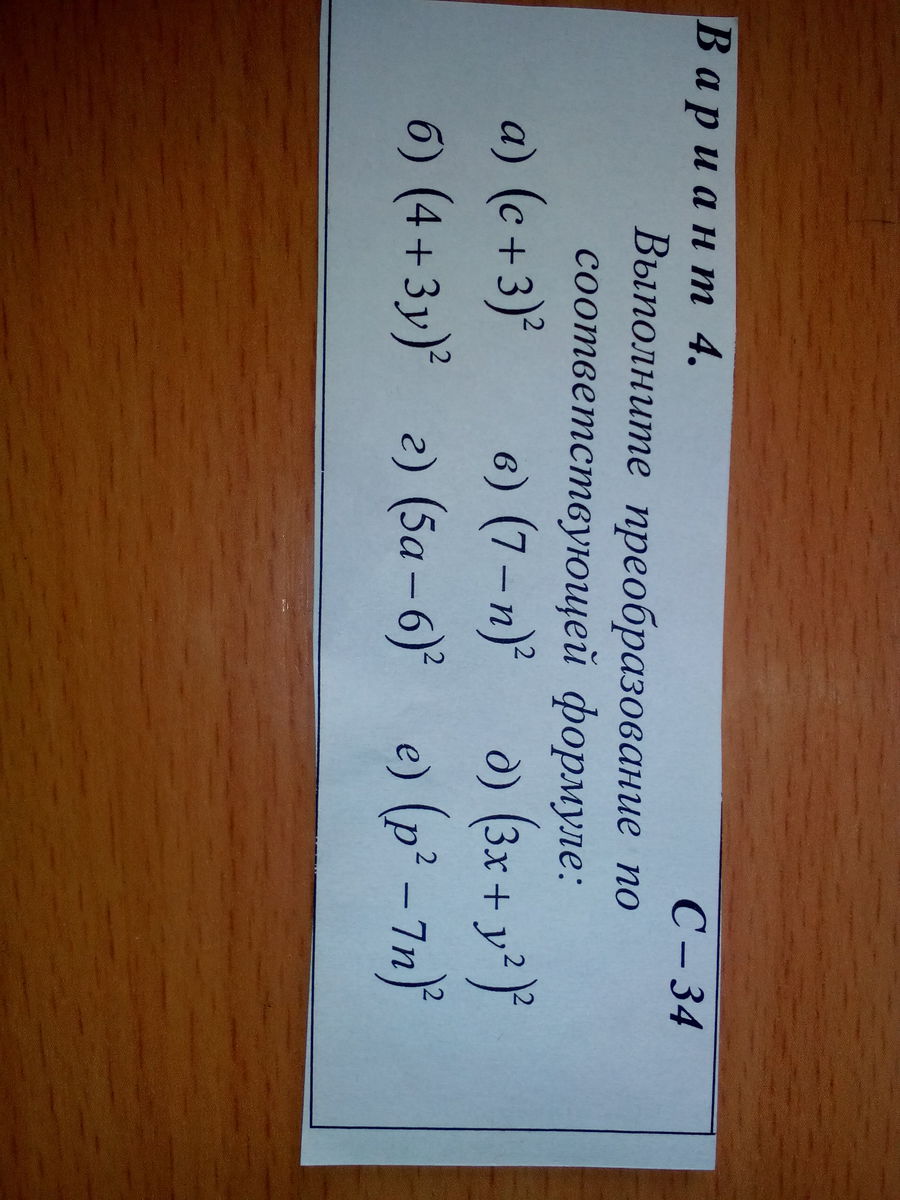 Вариант 4. С – 34
Выполните преобразование по
соответствующей формуле:
а) (c + 3)² в) (7 – n)² д) (3x + y²)²
б) (4 + 3y)² г) (5a – 6)² е) (p² – 7n)²